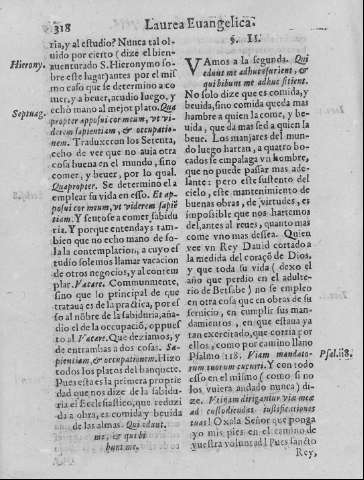 318
Laurea Euangelica.
ria, y al estudio? Nunca tal ol-
uido por cierto (dize el bien-
Hierony.
auenturado S. Hieronymo so-
bre este lugar) antes por el mis
mo caso que se determino a co
mer, y a beuer, acudio luego, y
echò mano al mejor plato. Qua
Septuag.
propter apposui cor meum, vt vi-
derem sapientiam, & occupatio-
nem. Traduxeron los Setenta,
echo de ver que no auia otra
cosa buena en el mundo, sino
comer, y beuer, por lo qual.
Quapropter. Se determino el a
emplear su vida en esso. Et ap-
posui cor meum, vt viderem sapiẽ
tiam. Y sentose a comer sabidu
ria. Y porque entendays tam-
bien que no echo mano de so-
la la contemplacion, a cuyo es
tudio solemos llamar vacacion
de otros negocios, y al contem
plar. Vacare. Communmente,
sino que lo principal de que
trataua es de la practica, por es
so al nõbre de la sabiduria, aña-
dio el de la occupaciõ, oppues
to al Vacare. Que deziamos, y
de entrambas a dos cosas. Sa-
pientiam, & occupationem. Hizo
todos los platos del banquete.
Pues esta es la primera proprie
dad que nos dize de la sabidu-
ria el Ecclesiastico, que reduzi
da a obra, es comida y beuida
de las almas. Qui edunt
me, & qui bi
bunt me.
§. II.
VAmos a la segunda. Qui
edunt me adhuc esurient, &
qui bibunt me adhuc sitient.
No solo dize que es comida, y
beuida, sino comida que da mas
hambre a quien la come, y be-
uida, que da mas sed a quien la
beue. Los manjares del mun-
do luego hartan, a quatro bo-
cados se empalaga vn hombre,
que no puede passar mas ade-
lante: pero este sustento del
cielo, este mantenimiento de
buenas obras, de virtudes, es
impossible que nos hartemos
del, antes al reues, quanto mas
come vno mas dessea. Quien
vee vn Rey Dauid cortado a
la medida del coraçõ de Dios,
y que toda su vida (dexo el
año que perdio en el adulte-
rio de Betsabe) no se empleo
en otra cosa que en obras de su
seruicio, en cumplir sus man-
damientos, en que estaua ya
tan exercitado, que corria por
ellos, como por camino llano
Psalmo 118. Viam mandato-
Psal. 118.
rum tuorum cucurri. Y con todo
esso en el mismo (como si no
los vuiera andado nunca) di-
ze. Vtinam dirigantur viæ meæ
ad custodiendas iustificationes
tuas! O xala Señor que ponga
yo mis pies en el camino de
vuestra voluntad! Pues sancto
Rey,